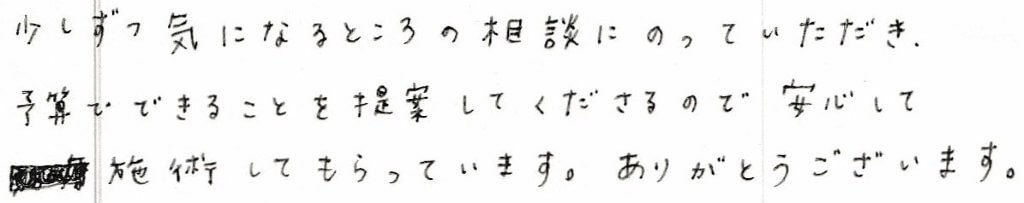 少しずつ気になるところの相談にのっていただき、
予算でできることを提案してくださるので安心して
施術してもらっています。ありがとうございます。